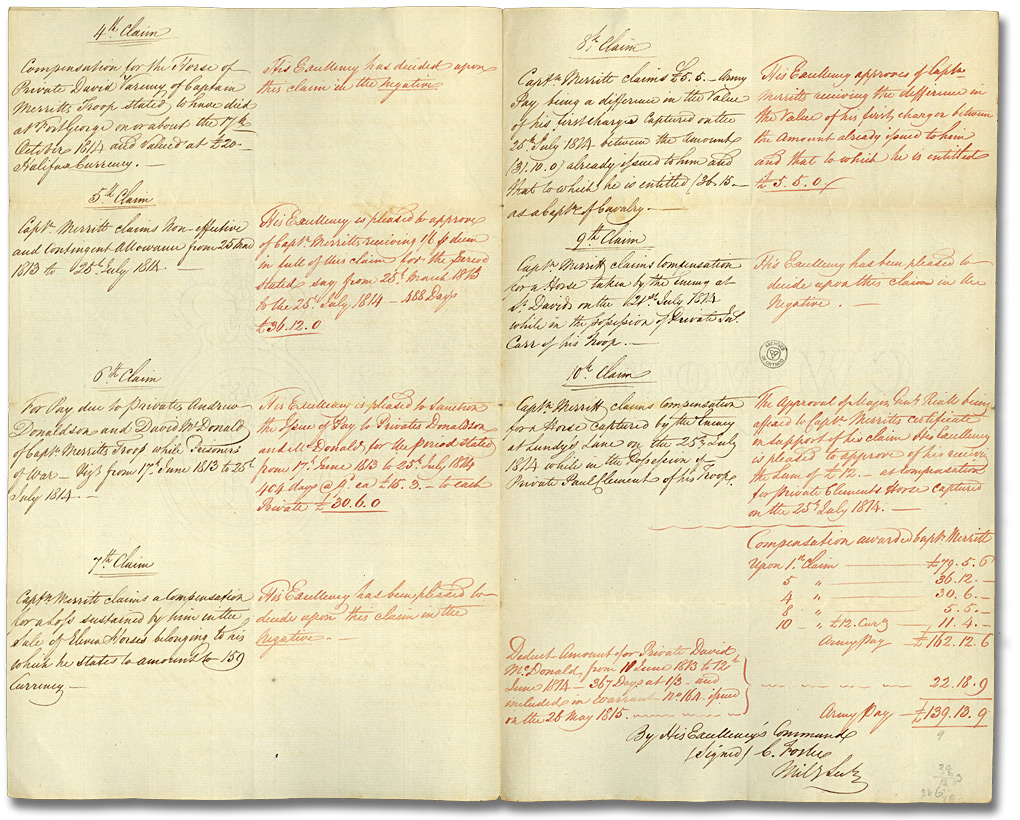 4th Claim
Compensation for the Horse of
Private David Vareny of Captain
Merritts Troop stated to have died
at Fort George on or about the 17th
October 1814 and valued at £20-
Halifax Currency. —
His Excellency has decided upon
this claim in the Negative
5th Claim
Capt. Merritt claims Non-effective
and Contingent Allowance from 25 Mar
1813 to 25 July 1814. —
His Excellency is pleased to approve
of Captn Merritts receiving 1/6 p diem
in full of this claim for the period
stated say, from 25th March 1813
to the 25th July 1814 — 488 Days
£36.12.0
6th Claim
For Pay due to Privates Andrew
Donaldson and David McDonald
of Captn Merritts Troop while Prisoners
of War — Vizt from 17th June 1813 to 25th
July 1814. —
His Excellency is pleased to Sanction
the Issue of Pay to Privates Donaldson
and McDonald, for the period stated
from 17th June 1813 to 25th July 1814
404 days @ 9d ea £15.3.- to each
Private £30.6.0
7th Claim
Captn Merritt claims a Compensation
for a Loss sustained by him in the
Sale of Eleven Horses belonging to his
which he states to amount to 159
Currency —
His Excellency has been pleased to
decide upon this claim in the
Negative. —
8th Claim
Captn Merritt claims £5.5.- Army
Pay being a difference in the Value
of his first charger Captured on the
25th July 1814 between the Amount
(31.10.0) already issued to him and
that to which he is entitled (36.15.-
as a Captn of Cavalry. —
His Excellency approves of Captn
Merritts receiving the difference in
the Value of his first charger between
the Amount already issued to him
and that to which he is entitled
£5.5.0
9th Claim
Captn Merritt claims Compensation
for a Horse taken by the enemy at
St David on the 21st July 1814
while in the possession of Private
Carr of his Troop. —
His Excellency has been pleased to
decide upon this claim in the
Negative. —
ARCHIVES
OF ONTARIO
10th Claim
Captn Merritt claims Compensation
for a Horse captured by the Enemy
at Lundy's Lane on the 25th July
1814 while in the Possession of
Private Paul Clement of his Troop.
The Approval of Major Genl Riall being
affixed to Captn Merritts certificate
in support of his claim His Excellency
is pleased to approve of his receiving
the Sum of £12.- as Compensation
for Private Clements Horse captured
on the 25th July 1814. —
Compensation awarded Captn Merritt
Upon 1st Claim — £79.5.6
5 " — 36.12.-
4 " — 30.6.-
8 " — 5.5.-
10 - " £12. Cury — 11.4.-
Army Pay — £162.12.6
Deduct Amount for Private David
McDonald, from 11 June 1813 to 12th
June 1814 — 367 Days at 1/3 - and
included in Warrant No 164. issued
on the 28 May 1815.
22.18.9
Army Pay — £139.13.9
By His Excellency's Command
(Signed) C. Foster
Mily Secy